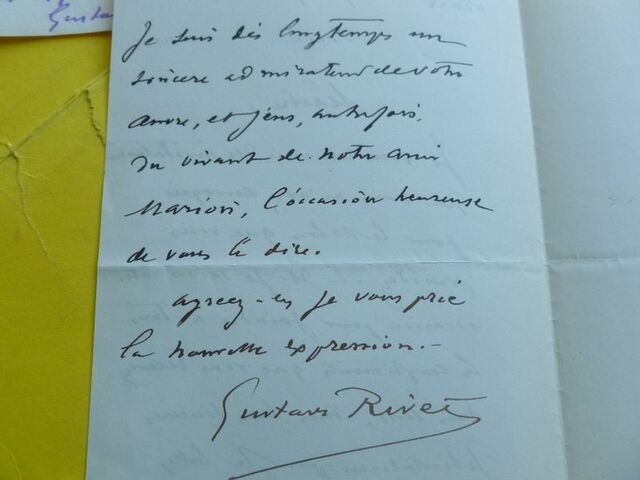 Gusta
Je suis dès longtemps un
sincère admirateur de votre
œuvre, et j'eus, autrefois,
du vivant de notre ami
Marion, l'occasion heureuse
de vous le dire.
agréez-en je vous prie
la nouvelle expression.-
Gustave Rivet